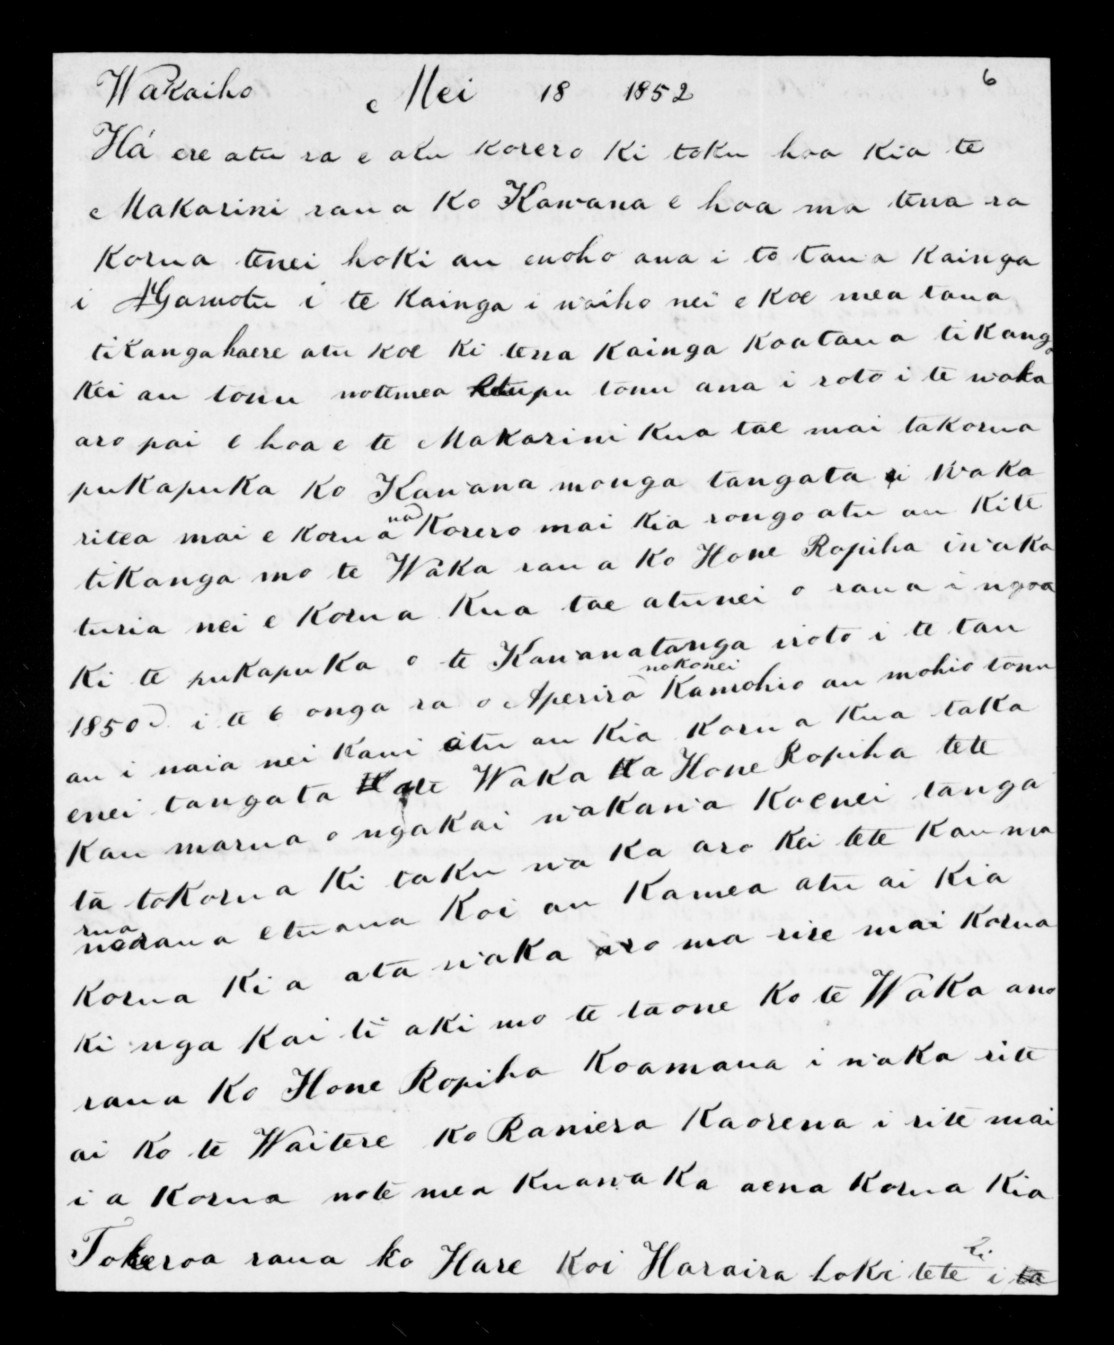 Wakaiho Mei 18 1852 6
Há ere atu ra e aku korero ki toku hoa kia te
Makarini raua ko Kawana e hoa ma tena ra
korua tenei hoki au enoho ana i to taua kainga
i Ngamotu i te kainga i waiho nei e koe mea taua
tikangahaere atu koe ki tena kainga koataua tikanga
kei au tonu notemea etupu tonu ana i roto i te waka
aro pai e hoa e te Makarini kua tae mai takorua
pukapuka ko Kawana monga tangata i waka
ritea mai e korua
na
korero mai kia rongo atu au kite
tikanga mo te Waka raua ko Hone Ropiha iwaka
turia nei e korua kua tae atunei o raua ingoa
ki te pukapuka o te Kawanatanga iroto i te tau
nokonei
1850 i te 6 onga ra o Aperira kamohio au mohio tonu
au i naia nei kaui atu au kia korua kua taka
enei tangata Kate Waka ka Hone Ropiha tete
kau marua o ngakai wakawa koenei tanga
ta tokorua ki taku wa ka aro kei tete kau ma
rua
raua etuana koi au kamea atu ai kia
korua ki a ata waka aro ma rire mai korua
ki nga kai ti aki mo te taone ko te Waka ano
raua ko Hone Ropiha koamana i waka rite
ai ko te Waitere ko Raniera kaorena i rite mai
i a korua note mea kuawaka aena korua kia
Tokeroa raua ko Hare koi Haraira hoki tete
hi
i